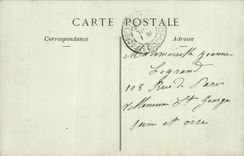 CARTE POSTALE
Correspondance
Adresse
Mademoiselle Jeanne
Legrand
108 Rue de Paris
Villeneuve St Georges
Seine et oise